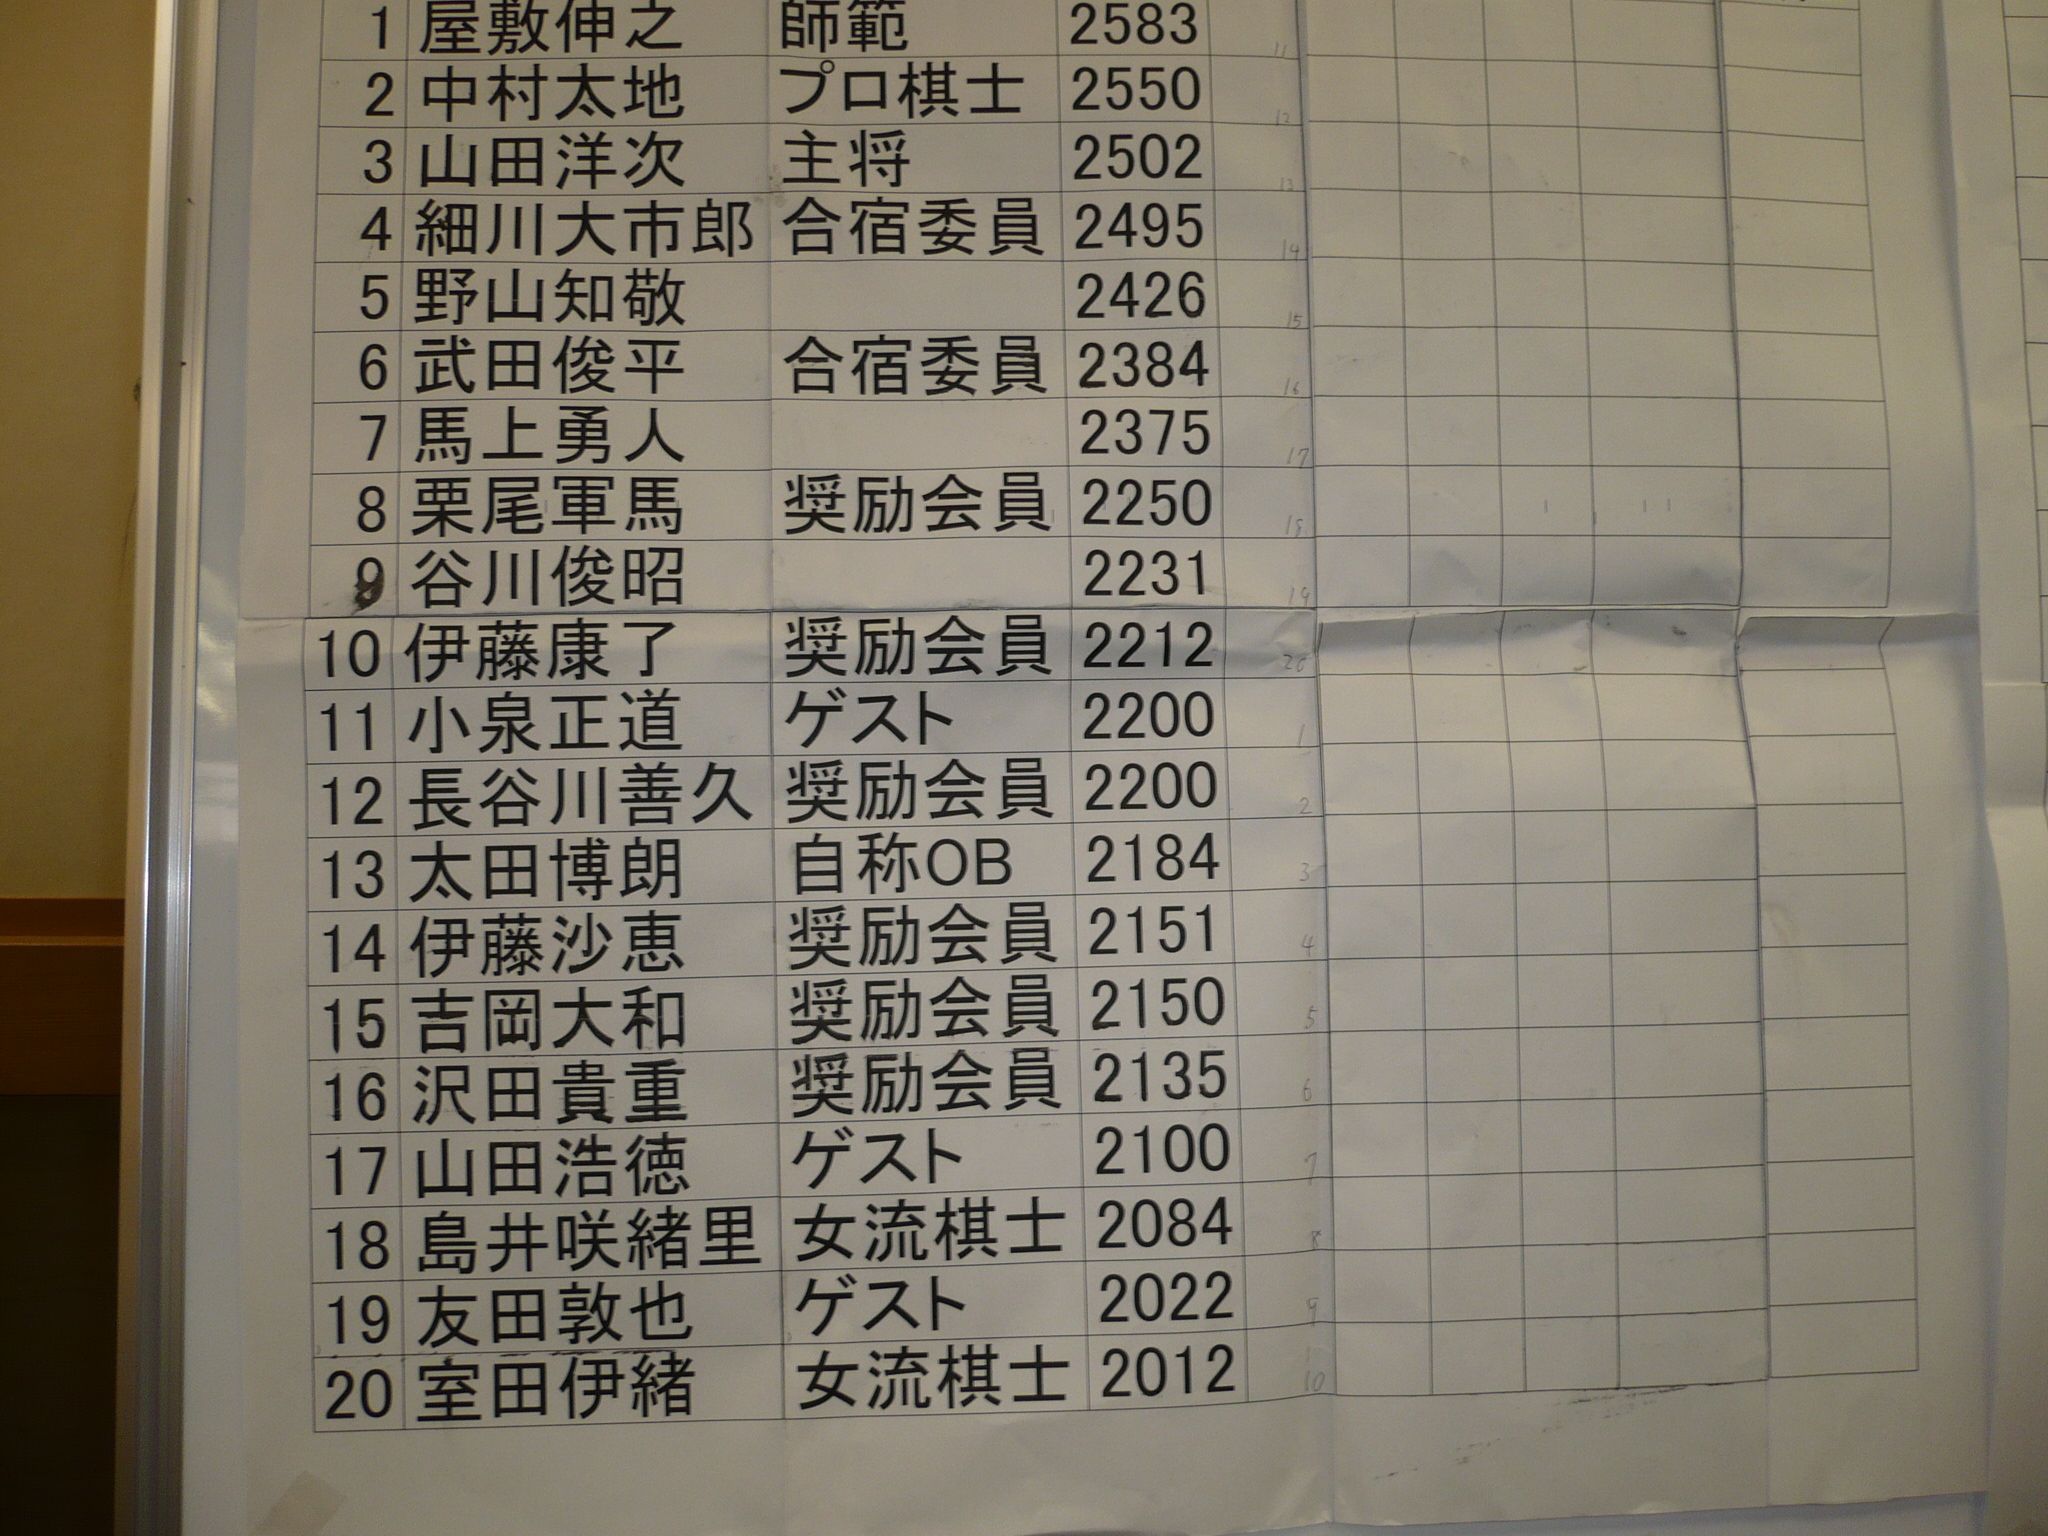 1 屋敷伸之 師範 2583 11
2 中村太地 プロ棋士 2550 12
3 山田洋次 主将 2502 13
4 細川大市郎 合宿委員 2495 14
5 野山知敬 2426 15
6 武田俊平 合宿委員 2384 16
7 馬上勇人 2375 17
8 栗尾軍馬 奨励会員 2250 18
9 谷川俊昭 2231 19
10 伊藤康了 奨励会員 2212 20
11 小泉正道 ゲスト 2200 1
12 長谷川善久 奨励会員 2200 2
13 太田博朗 自称OB 2184 3
14 伊藤沙恵 奨励会員 2151 4
15 吉岡大和 奨励会員 2150 5
16 沢田貴重 奨励会員 2135 6
17 山田浩徳 ゲスト 2100 7
18 島井咲緒里 女流棋士 2084 8
19 友田敦也 ゲスト 2022 9
20 室田伊緒 女流棋士 2012 10